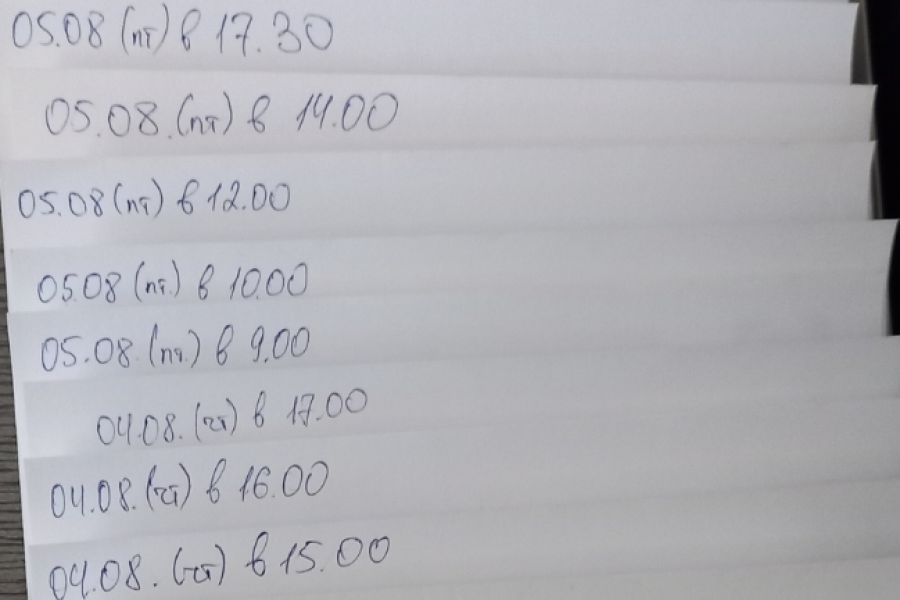 05.08 (пт) в 17.30
05.08. (пт) в 14.00
05.08 (пт) в 12.00
05.08 (пт.) в 10.00
05.08. (пт.) в 9.00
04.08. (чт) в 17.00
04.08. (чт) в 16.00
04.08. (чт) в 15.00